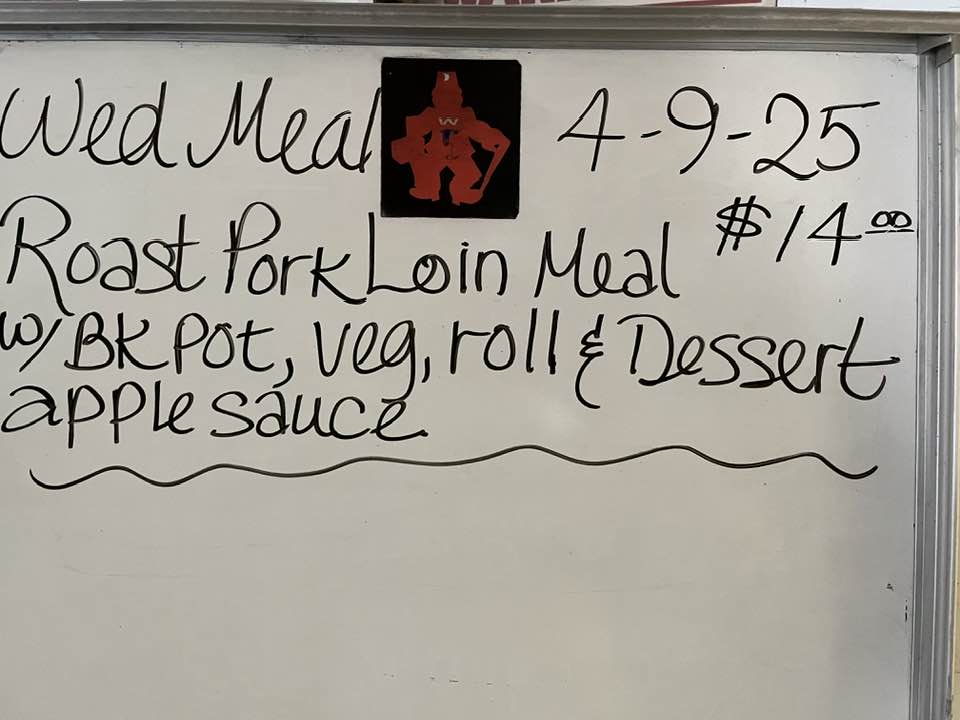 Wed Meal 4-9-25
Roast Pork Loin Meal $14.00
w/ BK Pot, Veg, roll & Dessert
apple sauce